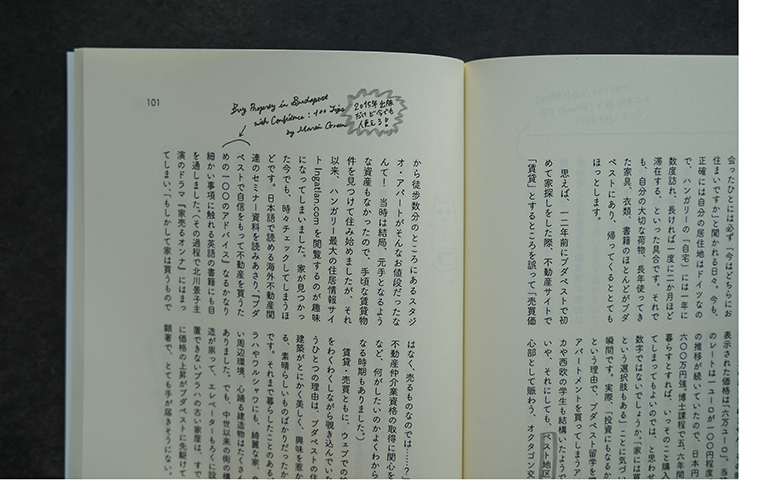 会ったひとには必ず「今はどちらにお
住まいですか」と聞かれる日々。今も、
正確には自分の居住地はドイツなの
で、ハンガリーの「自宅」には一年に
数度訪れ、長ければ一度に二か月ほど
滞在する、といった具合です。それで
も、自分の大切な荷物、長年使ってき
た家具、衣類、書籍のほとんどがブダ
ペストにあり、帰ってくるととても
ほっとします。
思えば、一二年前にブダペストで初
めて家探しをした際、不動産サイトで
「賃貸」とするところを誤って「売買価
表示された価格は「六万ユーロ」。当時
のレートは一ユーロが一〇〇円程度
の推移が続いていたので、日本円
六〇〇万円強。博士課程で五、六年間
暮らすとすれば、いっそのこと購入
してしまってもよいのでは、と思わせ
数字ではないでしょうか。「家は買
という選択肢もある」ことに気づい
瞬間です。実際、「投資にもなるか
という理由で、ブダペスト留学を
アパートメントを買ってしまうア
カや西欧の学生も結構いたようで
いや、それにしても、ペスト地区
心部として賑わう、オクタゴン交
101
Buy Property in Budapest
with Confidence: 100 Tips
by
2015年出版
だけど今でも
使える!
から徒歩数分のところにあるスタジ
オ・アパートがそんなお値段だったな
んて! 当時は結局、元手となるよう
な資産もなかったので、手頃な賃貸物
件を見つけて住み始めましたが、それ
以来、ハンガリー最大の住居情報サイ
ト Ingatlan.com を閲覧するのが趣味
になってしまいました。家が見つかっ
た今でも、時々チェックしてしまうほ
どです。日本語で読める海外不動産関
連のセミナー資料を読みあさり、『ブダ
ペストで自信をもって不動産を買うた
めの一〇〇のアドバイス』なるかなり
細かい事項に触れる英語の書籍にも目
を通しました。(その過程で北川景子主
演のドラマ『家売るオンナ』にはまっ
てしまい、「もしかして家は買うもので
はなく、売るものなのでは……?」
不動産仲介業資格の取得に関心を
など、何がしたいのかよくわから
なる時期もありました。)
賃貸・売買ともに、ウェブでの
をわくわくしながら覗き込んでいた
うひとつの理由は、ブダペストの住
建築がとにかく美しく、興味を惹か
る、素晴らしいものばかりだったか
です。それまで暮らしたことのある、
ラハやワルシャワにも、綺麗な家、
い周辺環境、心踊る建造物はたくさん
ありました。でも、中世以来の街の構
造が祟って、エレベーターもろくに設
置できないプラハの古い家屋は、すで
に価格の上昇がブダペストに先駆けて
顕著で、とても手が届きそうにない。